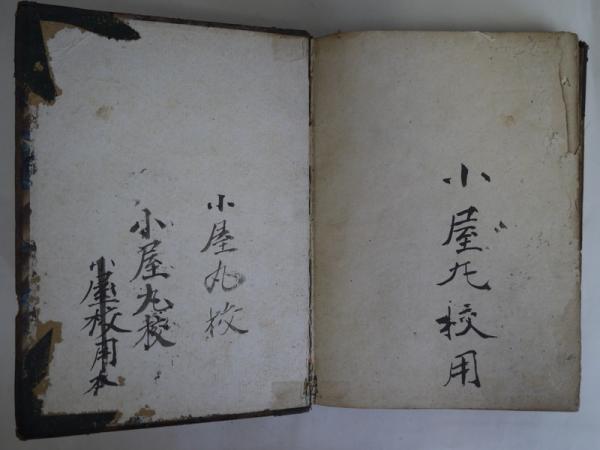 小屋丸校用
小屋丸校
小屋丸校
小屋校用本